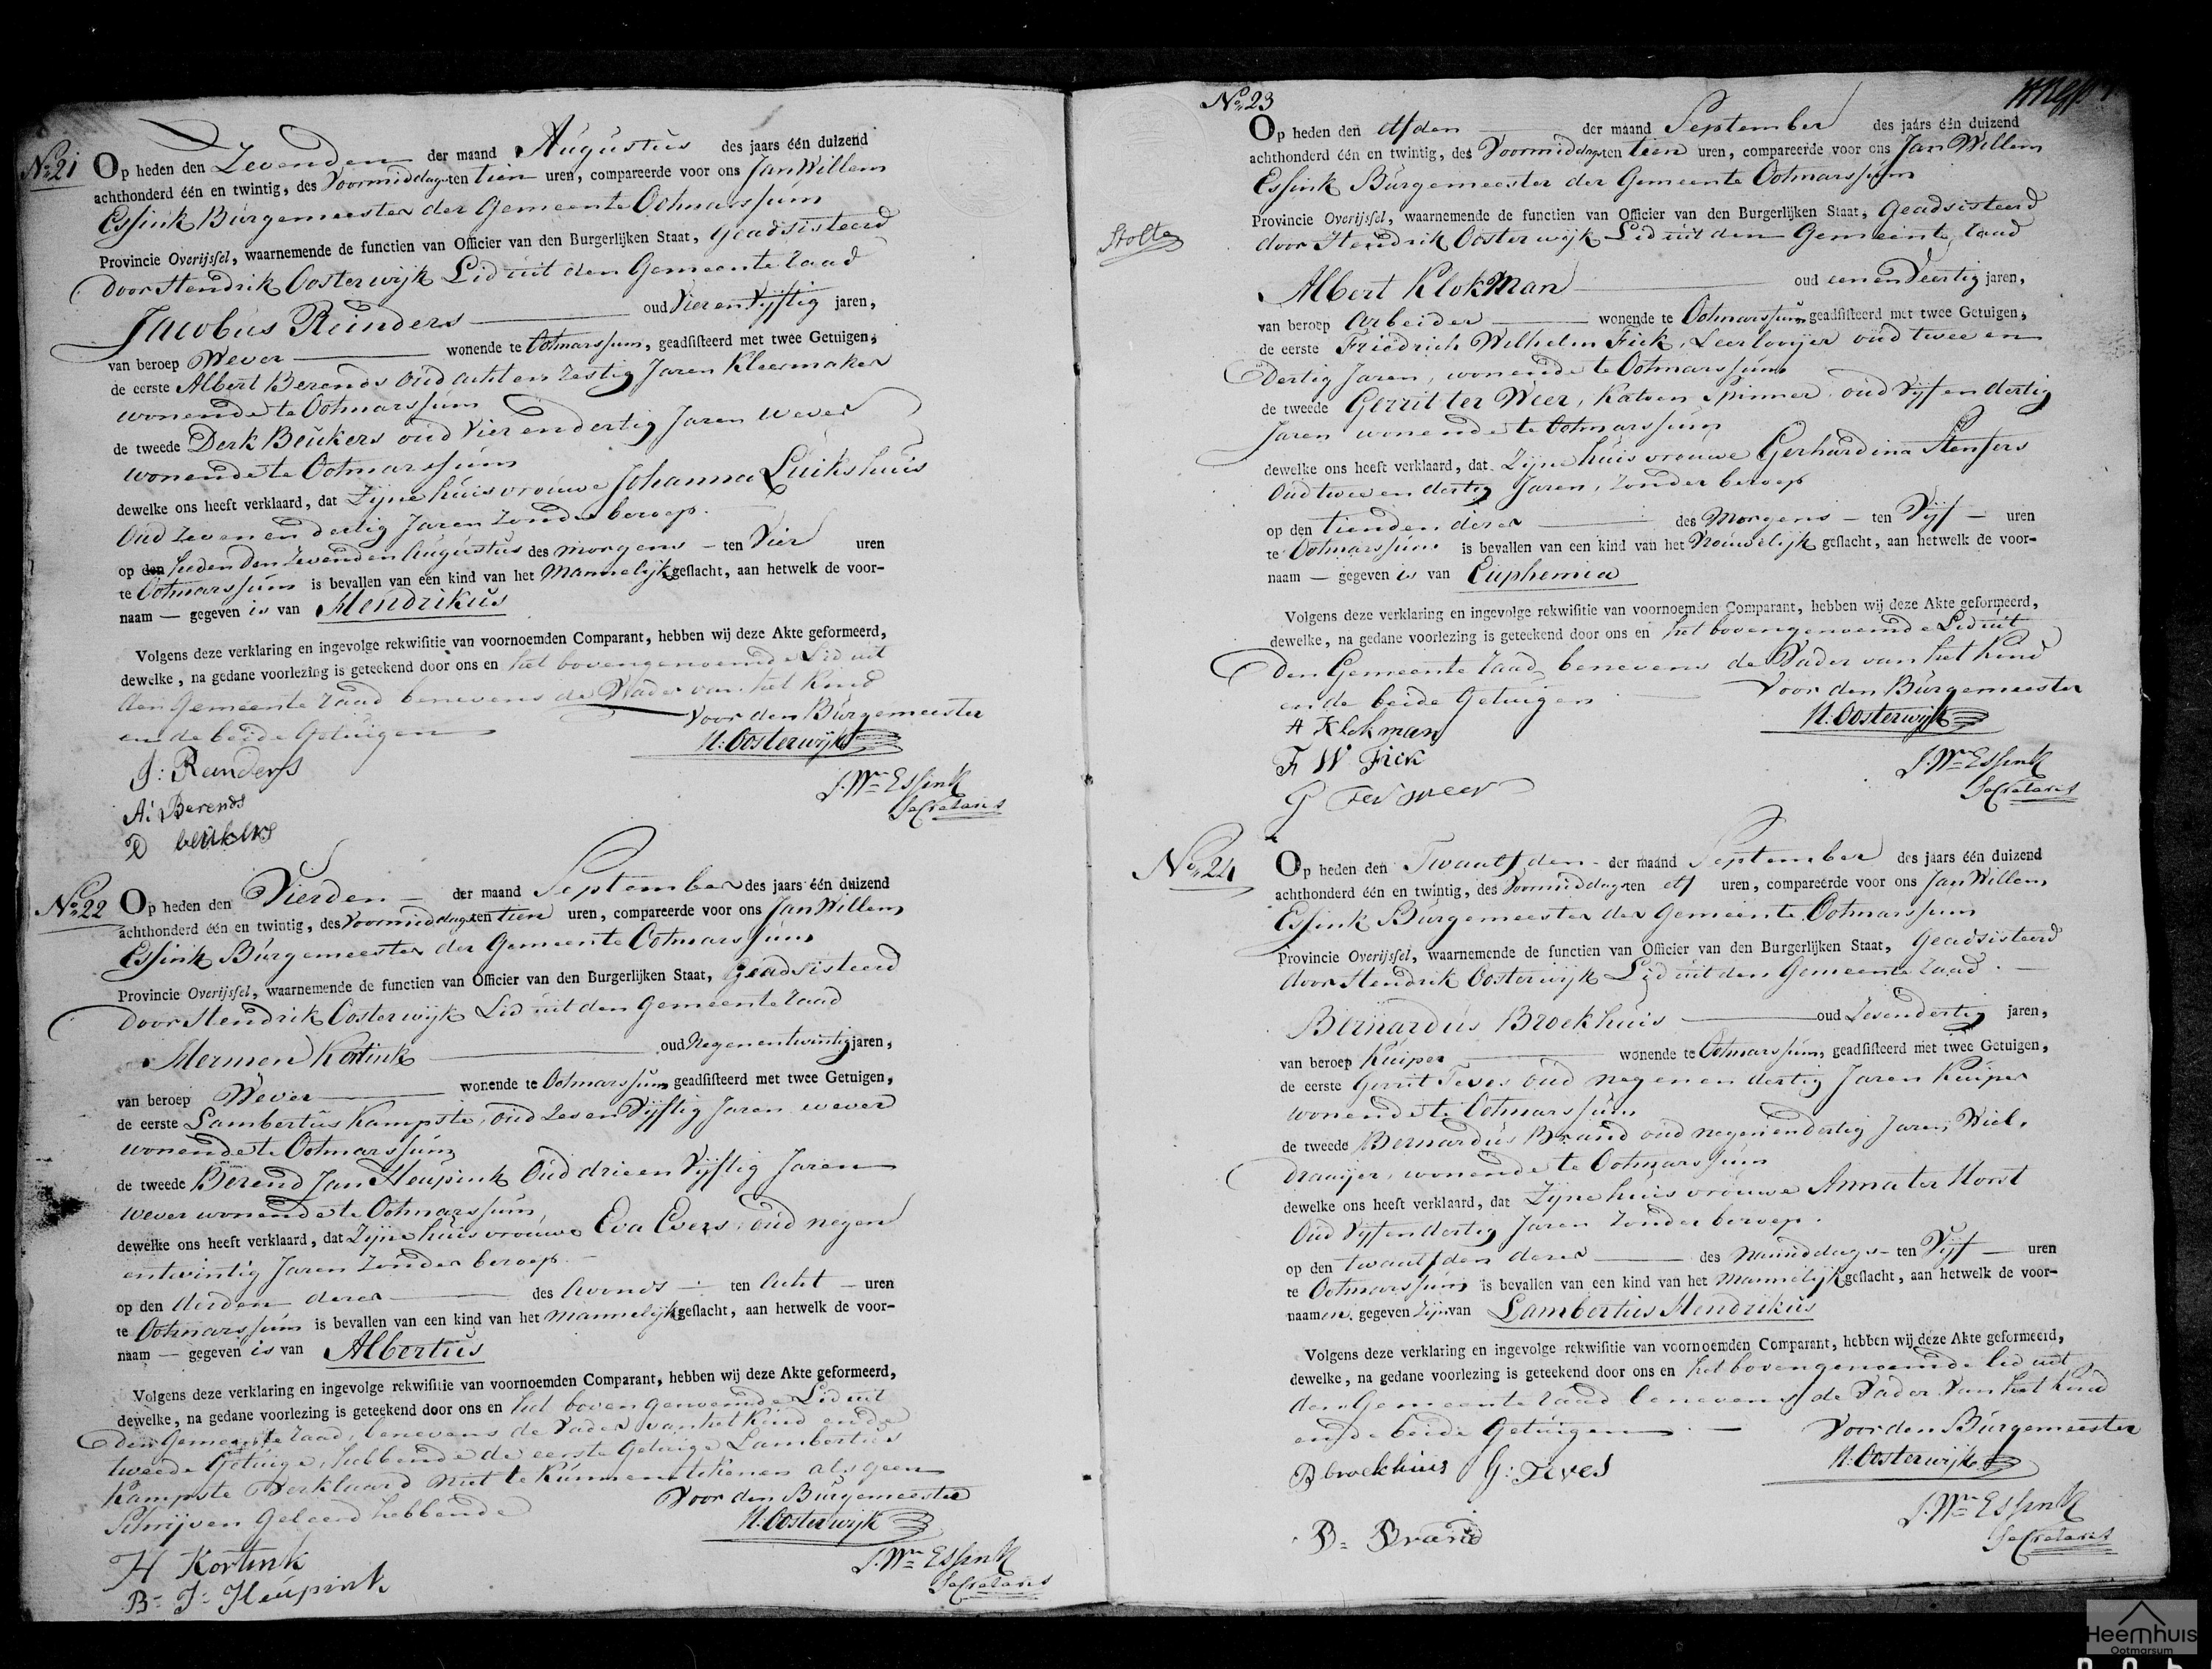 No. 21
Op heden den Zevenden der maand Augustus des jaars één duizend
achthonderd één en twintig, des Voormiddags ten tien uren, compareerde voor ons Jan Willem
Essink Burgemeester der Gemeente Ootmarssum
Provincie Overijssel, waarnemende de functien van Officier van den Burgerlijken Staat, Geadsisteerd
door Hendrik Oosterwijk Lid uit den Gemeente raad
Jacobus Reinders oud Vier en Vijftig jaren,
van beroep Wever wonende te Ootmarssum, geadsisteerd met twee Getuigen,
de eerste Albert Berends oud acht en zestig Jaren Kleermaker
wonende te Ootmarssum
de tweede Derk Beukers oud Vier en dertig Jaren wever
wonende te Ootmarssum
dewelke ons heeft verklaard, dat Zijne huisvrouwe Johanna Luikshuis
Oud Zeven en dertig Jaren Zonder beroep.
op den heden den Zevenden Augustus des morgens - ten Vier uren
te Ootmarssum is bevallen van een kind van het Mannelijk geslacht, aan hetwelk de voor-
naam — gegeven is van Hendrikus
Volgens deze verklaring en ingevolge rekwisitie van voornoemden Comparant, hebben wij deze Akte geformeerd,
dewelke, na gedane voorlezing is geteekend door ons en het bovengenoemde Lid uit
den Gemeente raad benevens de Vader van het Kind
en de beide Getuigen
Voor den Burgemeester
H: Oosterwijk
J: Reinders
J. Wm Essink
Secretaris
A: Berends
D beukers
No. 22
Op heden den Vierden der maand September des jaars één duizend
achthonderd één en twintig, des Voormiddags ten tien uren, compareerde voor ons Jan Willem
Essink Burgemeester der Gemeente Ootmarssum
Provincie Overijssel, waarnemende de functien van Officier van den Burgerlijken Staat, Geadsisteerd
door Hendrik Oosterwijk Lid uit den Gemeente raad
Hermen Kortink oud Negen en twintig jaren,
van beroep Wever wonende te Ootmarssum geadsisteerd met twee Getuigen,
de eerste Lambertus Kampste, oud Zes en Vijftig Jaren wever
wonende te Ootmarssum
de tweede Berend Jan Heupink Oud drie en Vijftig Jaren
wever wonende te Ootmarssum
dewelke ons heeft verklaard, dat Zijne huisvrouwe Eva Evers, oud negen
en twintig Jaren Zonder beroep.
op den derden dezer des Avonds - ten Acht - uren
te Ootmarssum is bevallen van een kind van het Mannelijk geslacht, aan hetwelk de voor-
naam — gegeven is van Albertus
Volgens deze verklaring en ingevolge rekwisitie van voornoemden Comparant, hebben wij deze Akte geformeerd,
dewelke, na gedane voorlezing is geteekend door ons en het bovengenoemde Lid uit
den Gemeente raad, benevens de Vader van het Kind en de
tweede Getuige, hebbende de eerste Getuige Lambertus
Kampste Verklaard niet te Kunnen tekenen als geen
Schrijven Geleerd hebbende
Voor den Burgemeester
H. Oosterwijk
H Kortink
J. Wm Essink
Secretaris
B- J: Heupink
No. 23
Op heden den elfden der maand September des jaars één duizend
achthonderd één en twintig, des Voormiddags ten tien uren, compareerde voor ons Jan Willem
Essink Burgemeester der Gemeente Ootmarssum
Provincie Overijssel, waarnemende de functien van Officier van den Burgerlijken Staat, Geadsisteerd
door Hendrik Oosterwijk Lid uit den Gemeente raad
Stolte
Albert Klokman oud een en Veertig jaren,
van beroep Arbeider wonende te Ootmarssum geadsisteerd met twee Getuigen,
de eerste Friedrich Wilhelm Fick, Leerlooyer oud twee en
Dertig Jaren, wonende te Ootmarssum
de tweede Gerrit ter Weer, Katoen Spinner, oud Vijf en dertig
Jaren wonende te Ootmarssum
dewelke ons heeft verklaard, dat Zijne huisvrouwe Gerhardina Stenfers
Oud twee en dertig Jaren, zonder beroep
op den tienden dezer des Morgens - ten Vijf - uren
te Ootmarssum is bevallen van een kind van het Vrouwelijk geslacht, aan hetwelk de voor-
naam — gegeven is van Euphemia
Volgens deze verklaring en ingevolge rekwisitie van voornoemden Comparant, hebben wij deze Akte geformeerd,
dewelke, na gedane voorlezing is geteekend door ons en het bovengenoemde Lid uit
den Gemeente raad, benevens de Vader van het Kind
en de beide Getuigen
Voor den Burgemeester
H: Oosterwijk
A Klokman
F W Fick
J. Wm Essink
Secretaris
G Ter weer
No. 24
Op heden den Twaalfden - der maand September des jaars één duizend
achthonderd één en twintig, des Voormiddags ten elf uren, compareerde voor ons Jan Willem
Essink Burgemeester der Gemeente Ootmarssum
Provincie Overijssel, waarnemende de functien van Officier van den Burgerlijken Staat, Geadsisteerd
door Hendrik Oosterwijk Lid uit den Gemeente raad.
Bernardus Broekhuis oud Zes en dertig jaren,
van beroep Kuiper wonende te Ootmarssum, geadsisteerd met twee Getuigen,
de eerste Gerrit Teves oud negen en dertig Jaren Kuiper
wonende te Ootmarssum
de tweede Bernardus Brand oud negen en dertig Jaren, Wiel-
draaijer, wonende te Ootmarssum
dewelke ons heeft verklaard, dat Zijne huisvrouwe Anna ter Horst
Oud Vijf en dertig Jaren Zonder beroep.
op den twaalfden dezer des Namiddags - ten Vijf - uren
te Ootmarssum is bevallen van een kind van het Mannelijk geslacht, aan hetwelk de voor-
naamen gegeven zijn van Lambertus Hendrikus
Volgens deze verklaring en ingevolge rekwisitie van voornoemden Comparant, hebben wij deze Akte geformeerd,
dewelke, na gedane voorlezing is geteekend door ons en het bovengenoemde lid uit
den Gemeente raad benevens de Vader van het Kind
en de beide Getuigen
Voor den Burgemeester
H: Oosterwijk
B broekhuis G: Teves
J. Wm Essink
Secretaris
B= Brand
Heemhuis
Ootmarsum